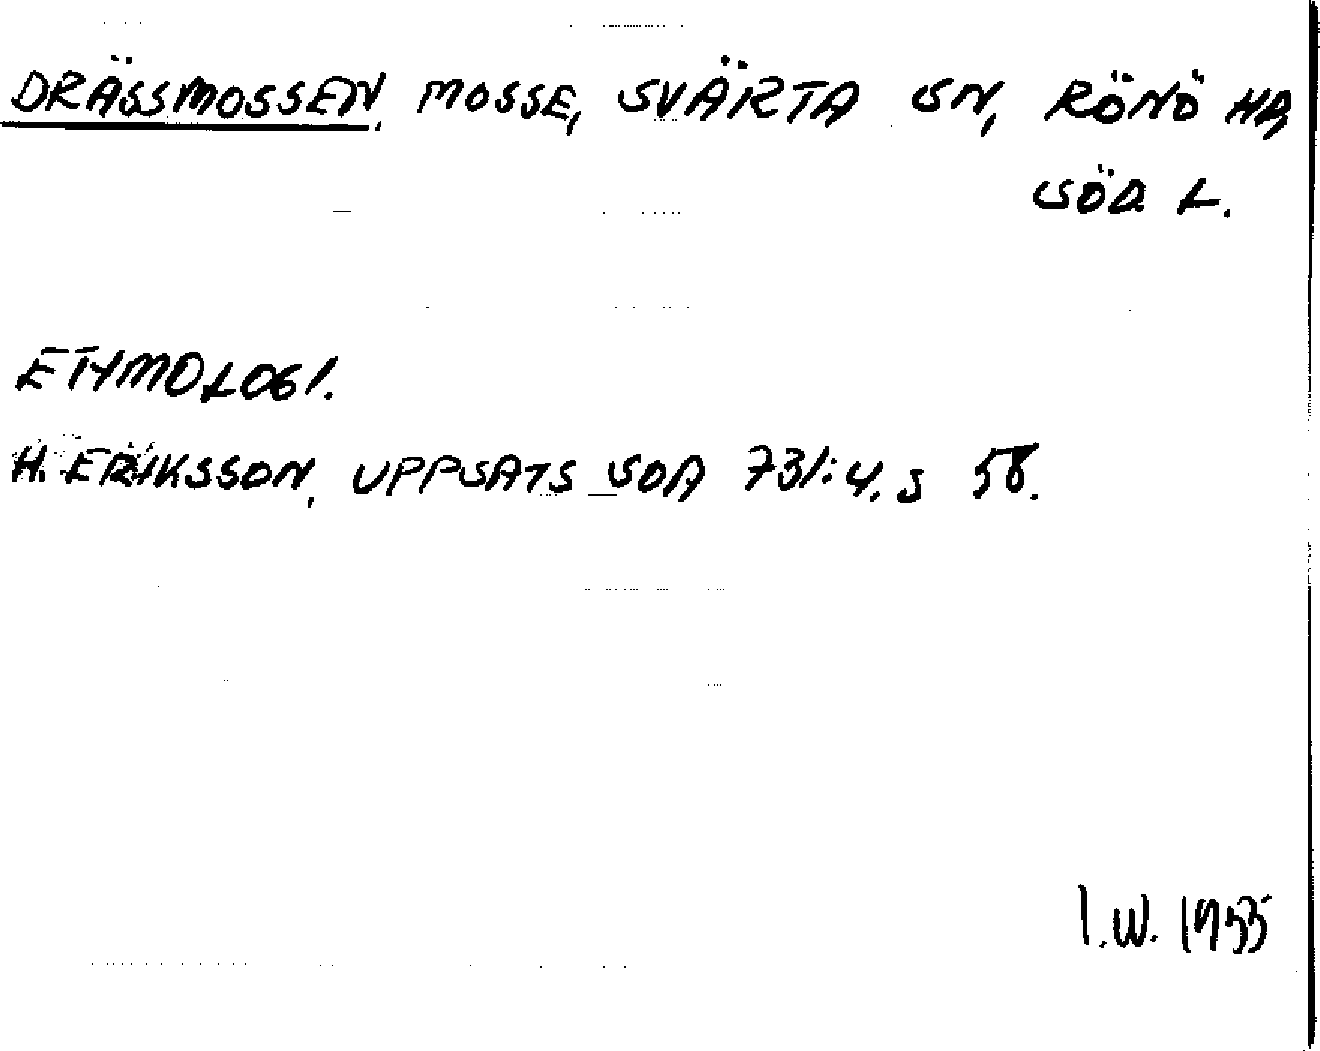 DRÄSSMOSSEN, MOSSE, SVÄRTA SN, RÖNÖ HD,
SÖD L.
ETYMOLOGI.
H. ERIKSSON, UPPSATS SOA 731:4, S 58.
I.W. 1955